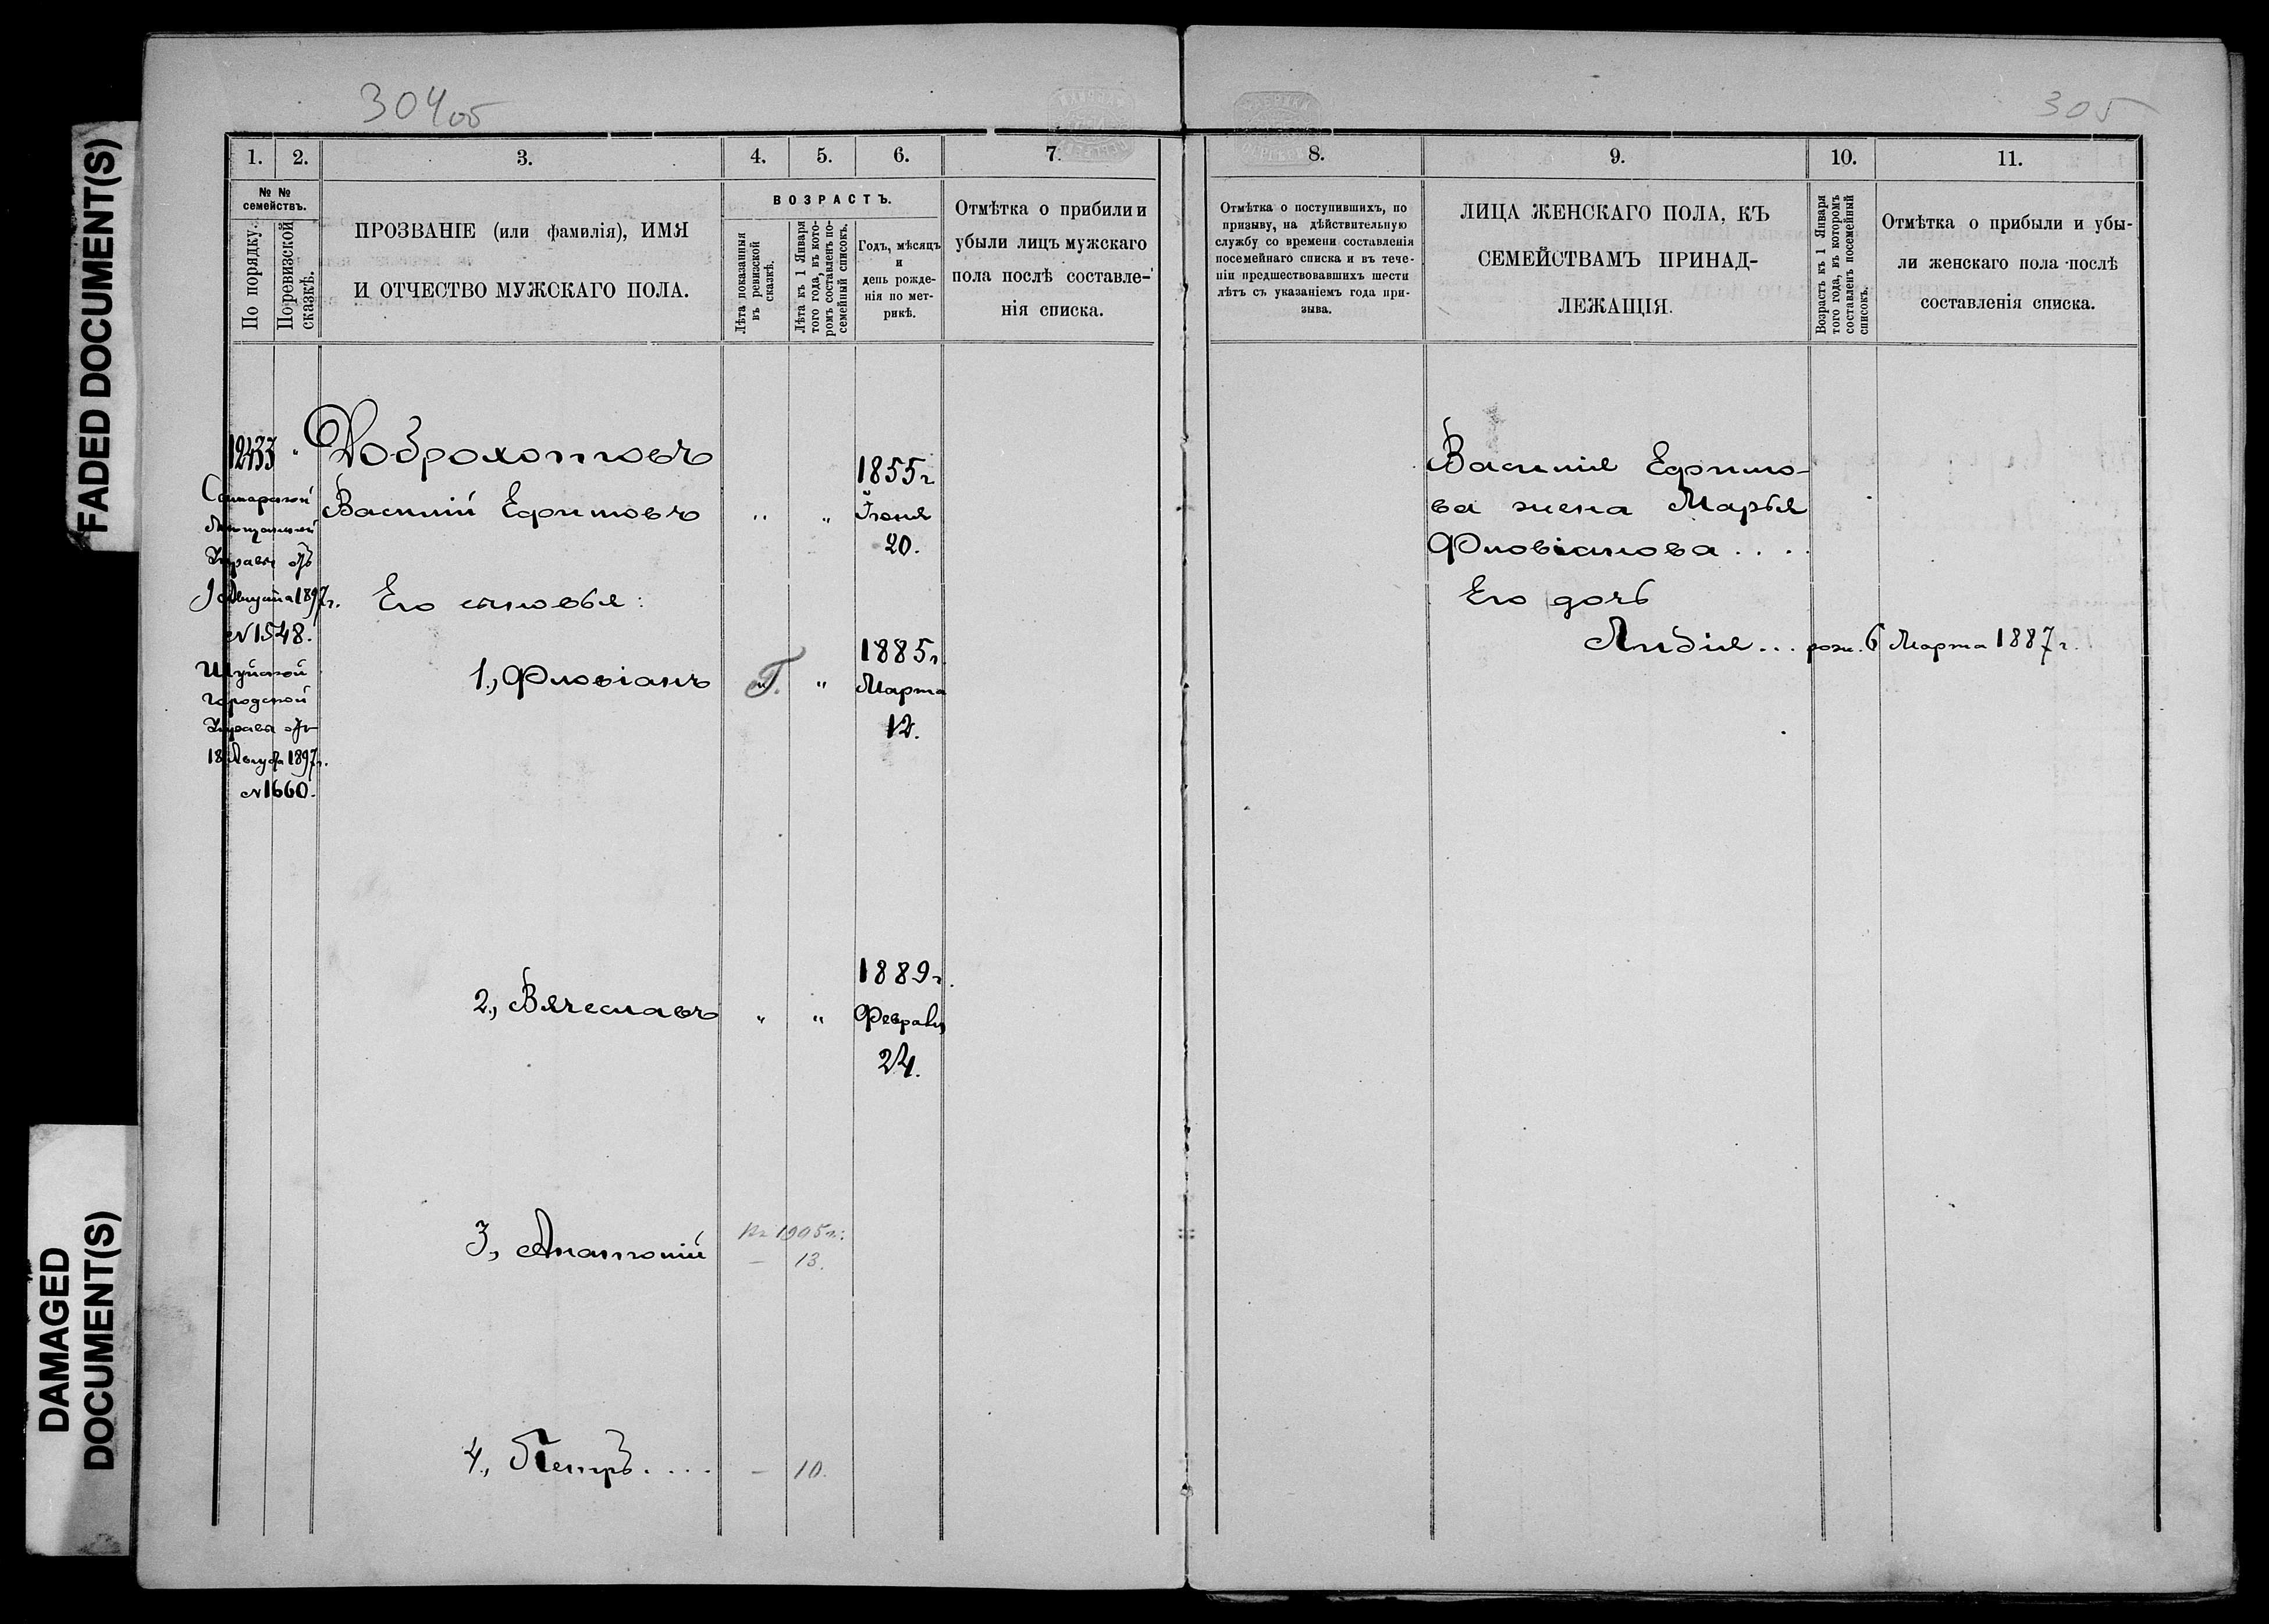 FADED DOCUMENT(S)
DAMAGED
DOCUMENT(S)
304об
1. 2. 3. 4. 5. 6. 7.
№ №
семействъ.
По порядку.
По ревизской
сказкѣ.
ПРОЗВАНІЕ (или фамилія), ИМЯ
И ОТЧЕСТВО МУЖСКАГО ПОЛА.
ВОЗРАСТЪ.
Лѣта показанныя
въ ревизской
сказкѣ.
Лѣта къ 1 Января
того года, въ кото-
ромъ составленъ по-
семейный списокъ.
Годъ, мѣсяцъ
и
день рожде-
нія по мет-
рикѣ.
Отмѣтка о прибыли и
убыли лицъ мужскаго
пола послѣ составле-
нія списка.
12433 "
Самарской
Мѣщанской
Управы отъ
9 Августа 1897 г.
№ 1548.
Шуйской
Городской
Управы отъ
18 Августа 1897 г.
№ 1660.
Доброхотовъ
Василій Ефимовъ " "
1855 г
Іюня
20.
Его сыновья:
1., Фловіанъ "
1885 г.
Марта
12.
2., Вячеславъ " "
1889 г.
Февраля
24.
3., Анатолій
1905 г.:
— 13.
4., Петръ.... — 10.
305
8. 9. 10. 11.
Отмѣтка о поступившихъ, по
призыву, на дѣйствительную
службу со времени составленія
посемейнаго списка и въ тече-
ніи предшествовавшихъ шести
лѣтъ съ указаніемъ года при-
зыва.
ЛИЦА ЖЕНСКАГО ПОЛА, КЪ
СЕМЕЙСТВАМЪ ПРИНАД-
ЛЕЖАЩІЯ.
Возрастъ къ 1 Января
того года, въ которомъ
составленъ посемейный
списокъ.
Отмѣтка о прибыли и убы-
ли женскаго пола послѣ
составленія списка.
Василія Ефимо-
ва жена Марья
Фловіанова....
Его дочь
Лидія... рож. 6 Марта 1887 г.